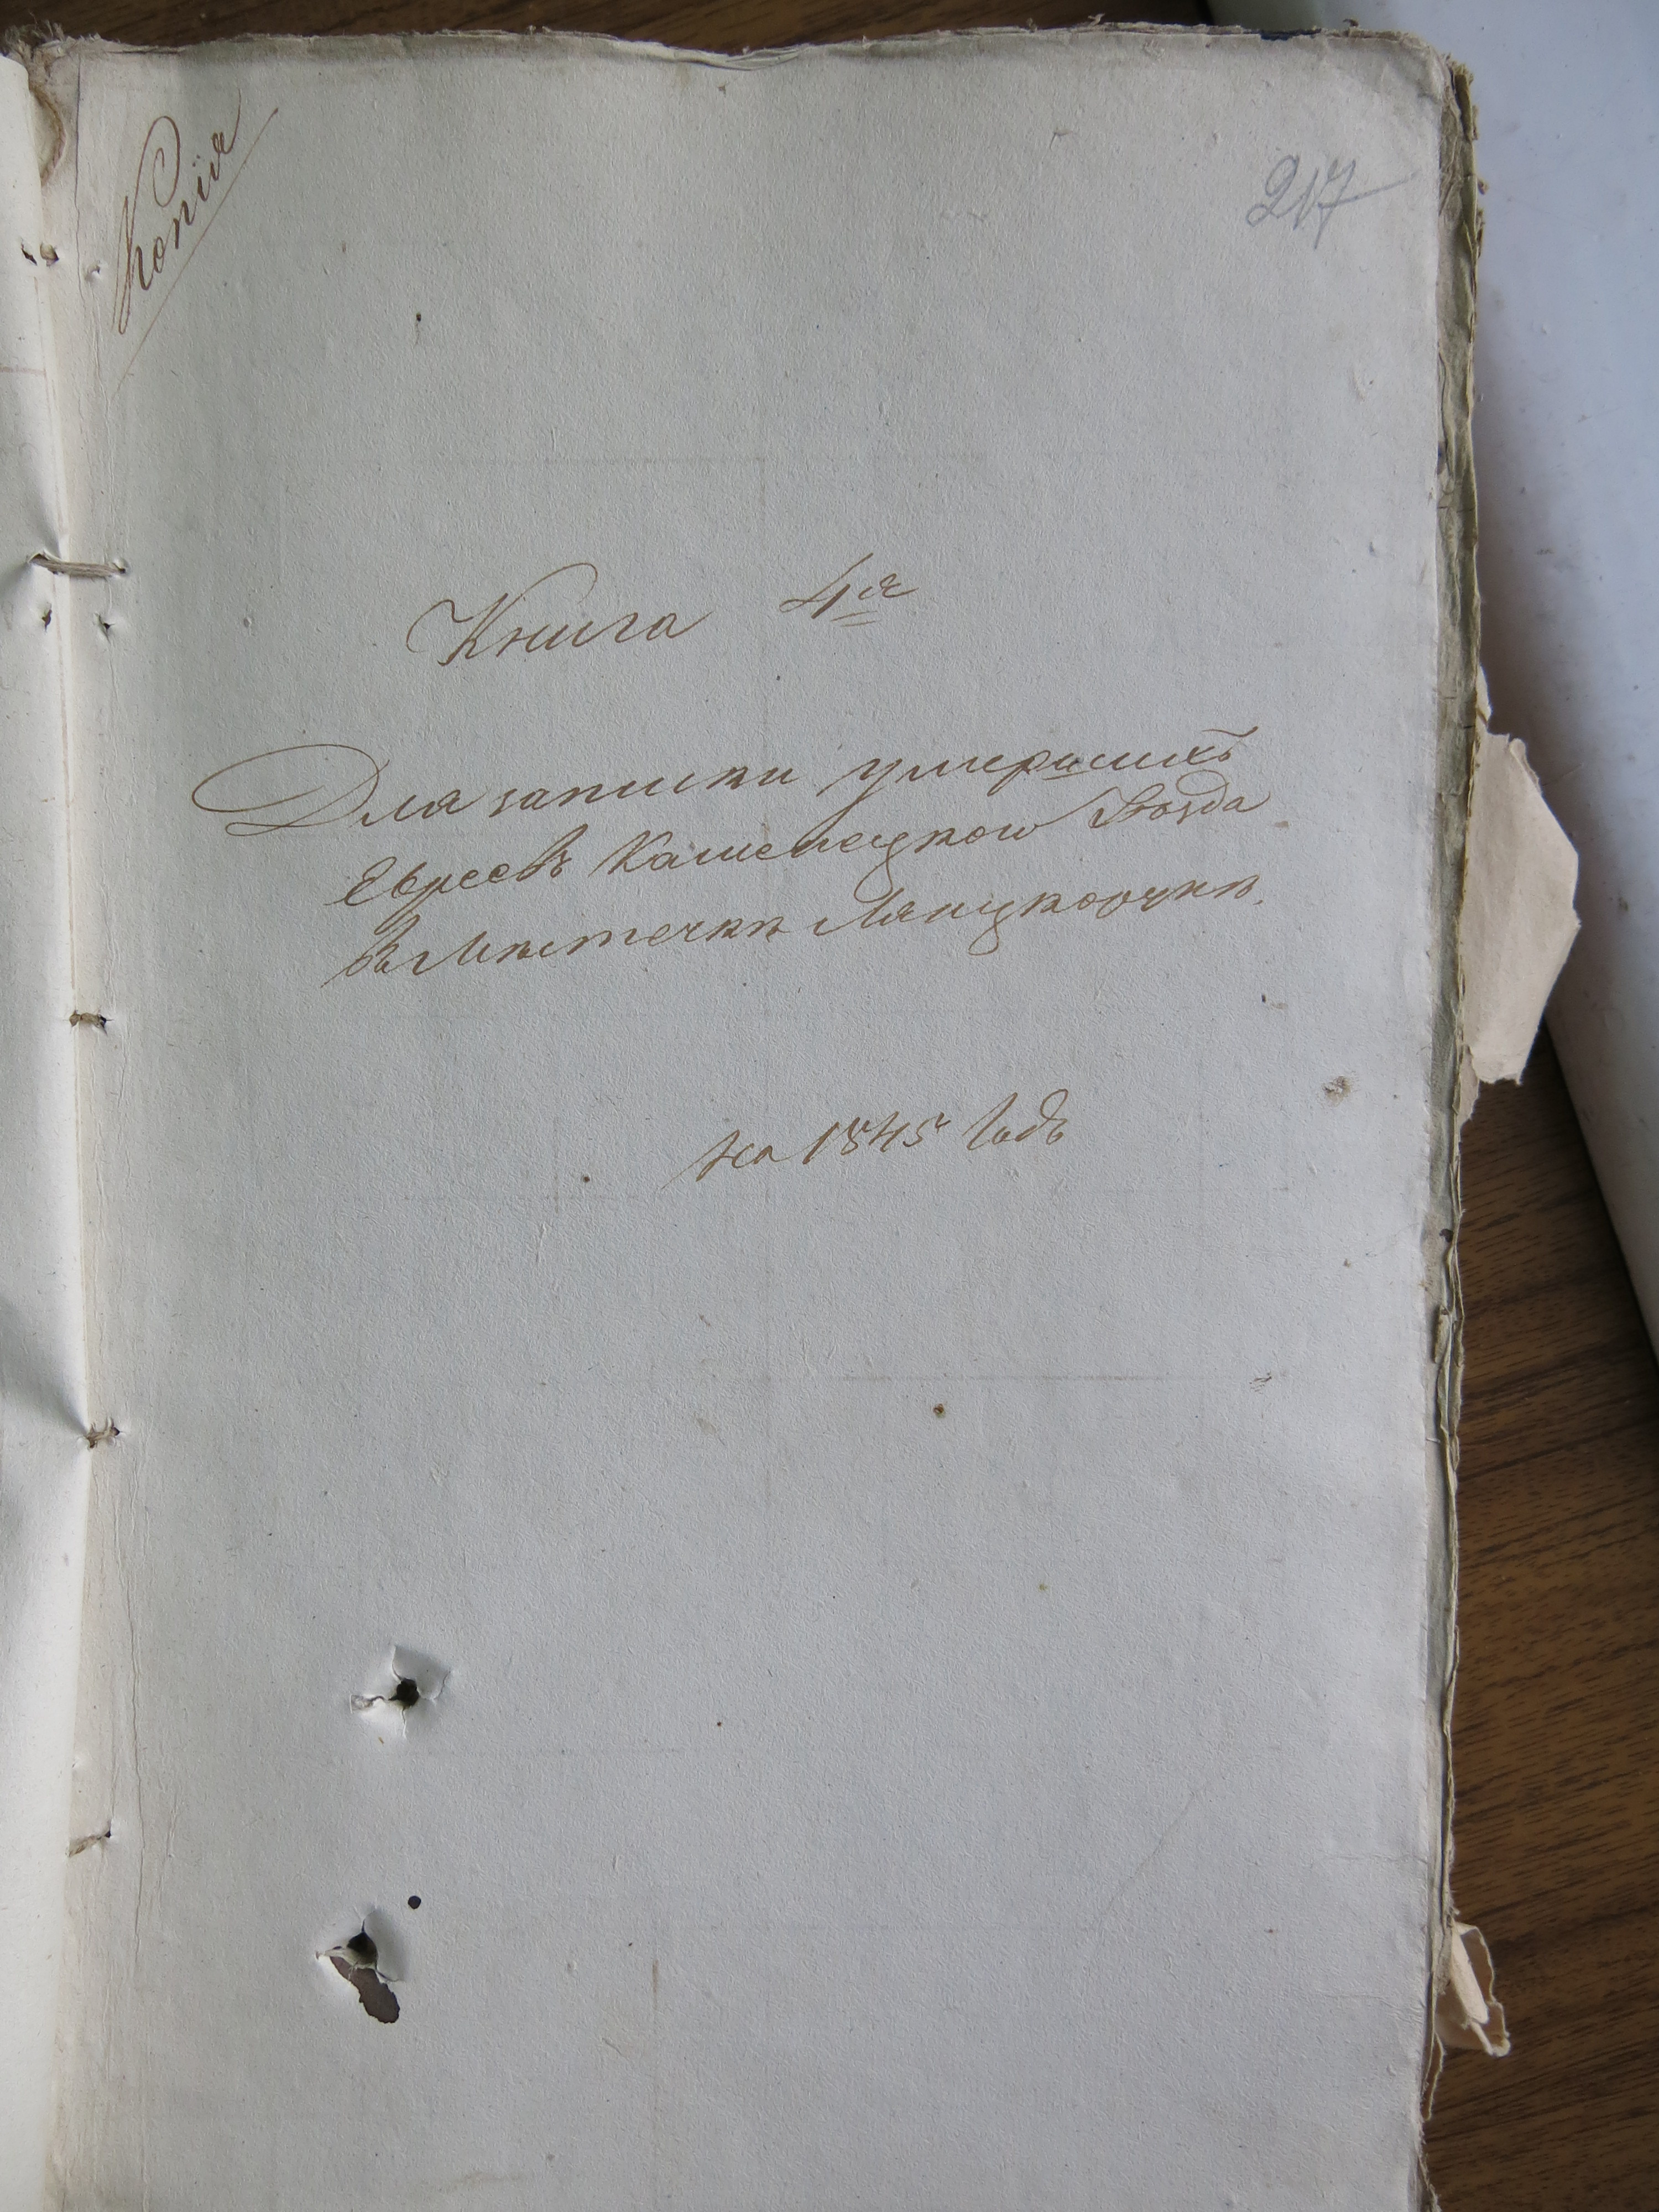 Копія
217
Книга 4я
Для записки умершихъ
Евреевъ Каменецкого Уѣзда
в Мѣстечкѣ Ляндкорунѣ.
на 1845 Годъ